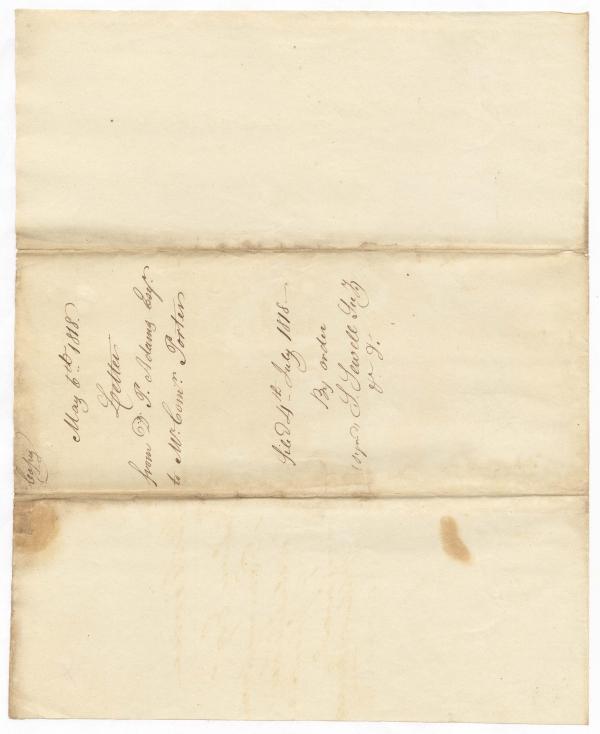 Copy
May 6th 1818.
Letter
from D. P. Adams Esqr.
to Mr. Comr. Porter
filed 4th July 1818
By order
S. Sewell